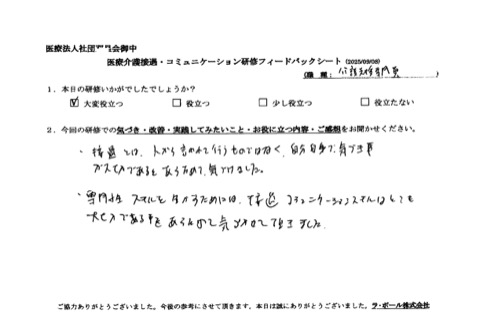 医療法人社団 會御中
医療介護接遇・コミュニケーション研修フィードバックシート (2025/09/08)
(職 種: 介護支援専門員 )
1．本日の研修いかがでしたでしょうか？
☑ 大変役立つ □ 役立つ □ 少し役立つ □ 役立たない
2．今回の研修での気づき・改善・実践してみたいこと・お役に立つ内容・ご感想をお聞かせください。
・接遇とは、人から言われて行うものではなく、自分自身で気づき事
が大切であるとあらためて、気づけました。
・専門性 スキルを生かすためには、接遇 コミュニケーションスキルはとても
大切である事を あらためて気づかせて頂きました。
ご協力ありがとうございました。今後の参考にさせて頂きます。本日は誠にありがとうございました。ラ・ポール株式会社